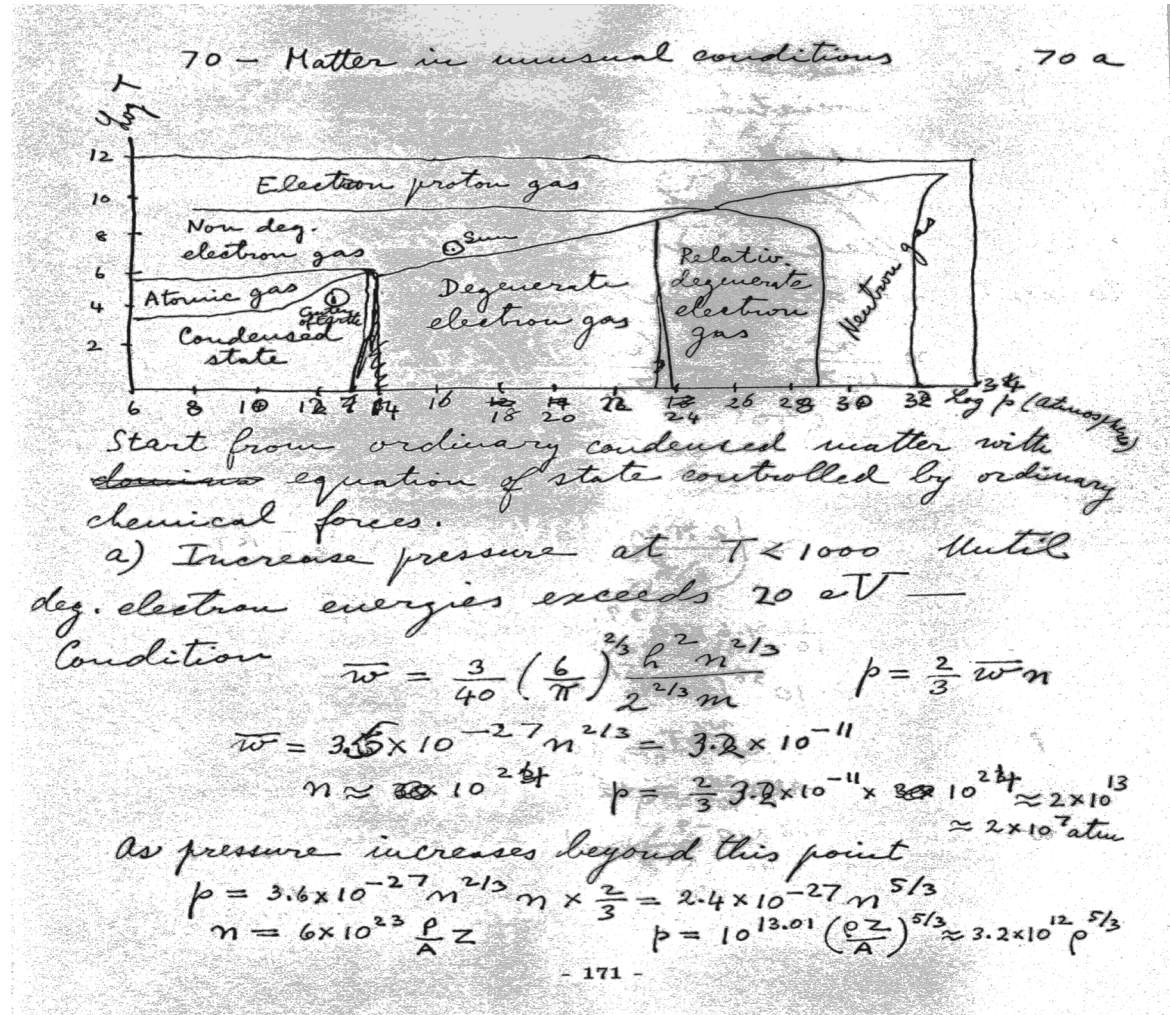 70 - Matter in unusual conditions 70 a
Log T
12
Electron proton gas
10
Non deg.
8
electron gas
Sun
Relativ.
6
Degenerate
degenerate
Atomic gas
electron gas
electron
4
Center
of Earth
gas
Neutron gas
Condensed
2
state
6 8 10 12 14 16 18 20 22 24 26 28 30 32 34 Log p (atmospheres)
Start from ordinary condensed matter with
equation of state controlled by ordinary
chemical forces.
a) Increase pressure at T < 1000 Until
deg. electron energies exceeds 20 eV —
Condition w̄ = 3/40 (6/π)^{2/3} h² n^{2/3} / 2^{2/3} m p = 2/3 w̄ n
w̄ = 3.6 × 10^{-27} n^{2/3} = 3.2 × 10^{-11}
n ≈ 10^{24} p = 2/3 3.2 × 10^{-11} × 10^{24} ≈ 2 × 10^{13}
≈ 2 × 10^7 atm
As pressure increases beyond this point
p = 3.6 × 10^{-27} n^{2/3} n × 2/3 = 2.4 × 10^{-27} n^{5/3}
n = 6 × 10^{23} ρ/A Z p = 10^{13.01} (ρZ/A)^{5/3} ≈ 3.2 × 10^{12} ρ^{5/3}
- 171 -